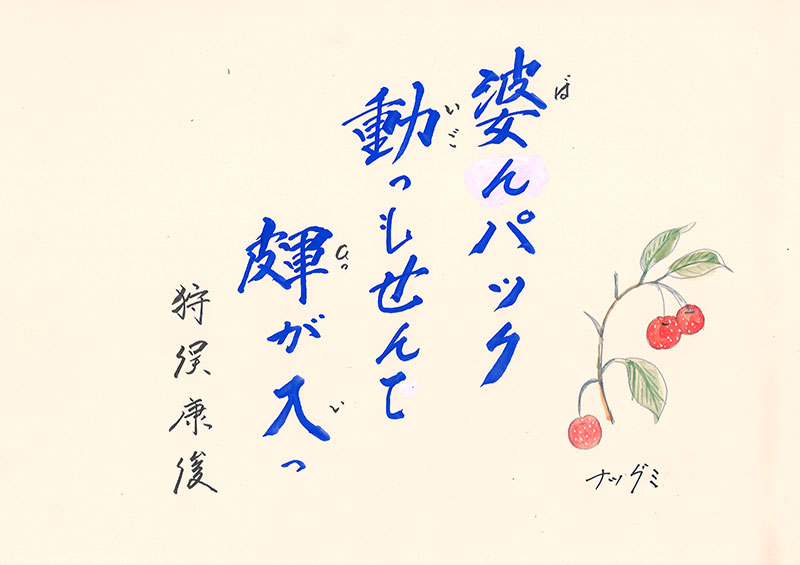 婆んパック
ば
動っもせんて
いご
皹が入っ
ひっ
い
狩俣康俊
ナツグミ